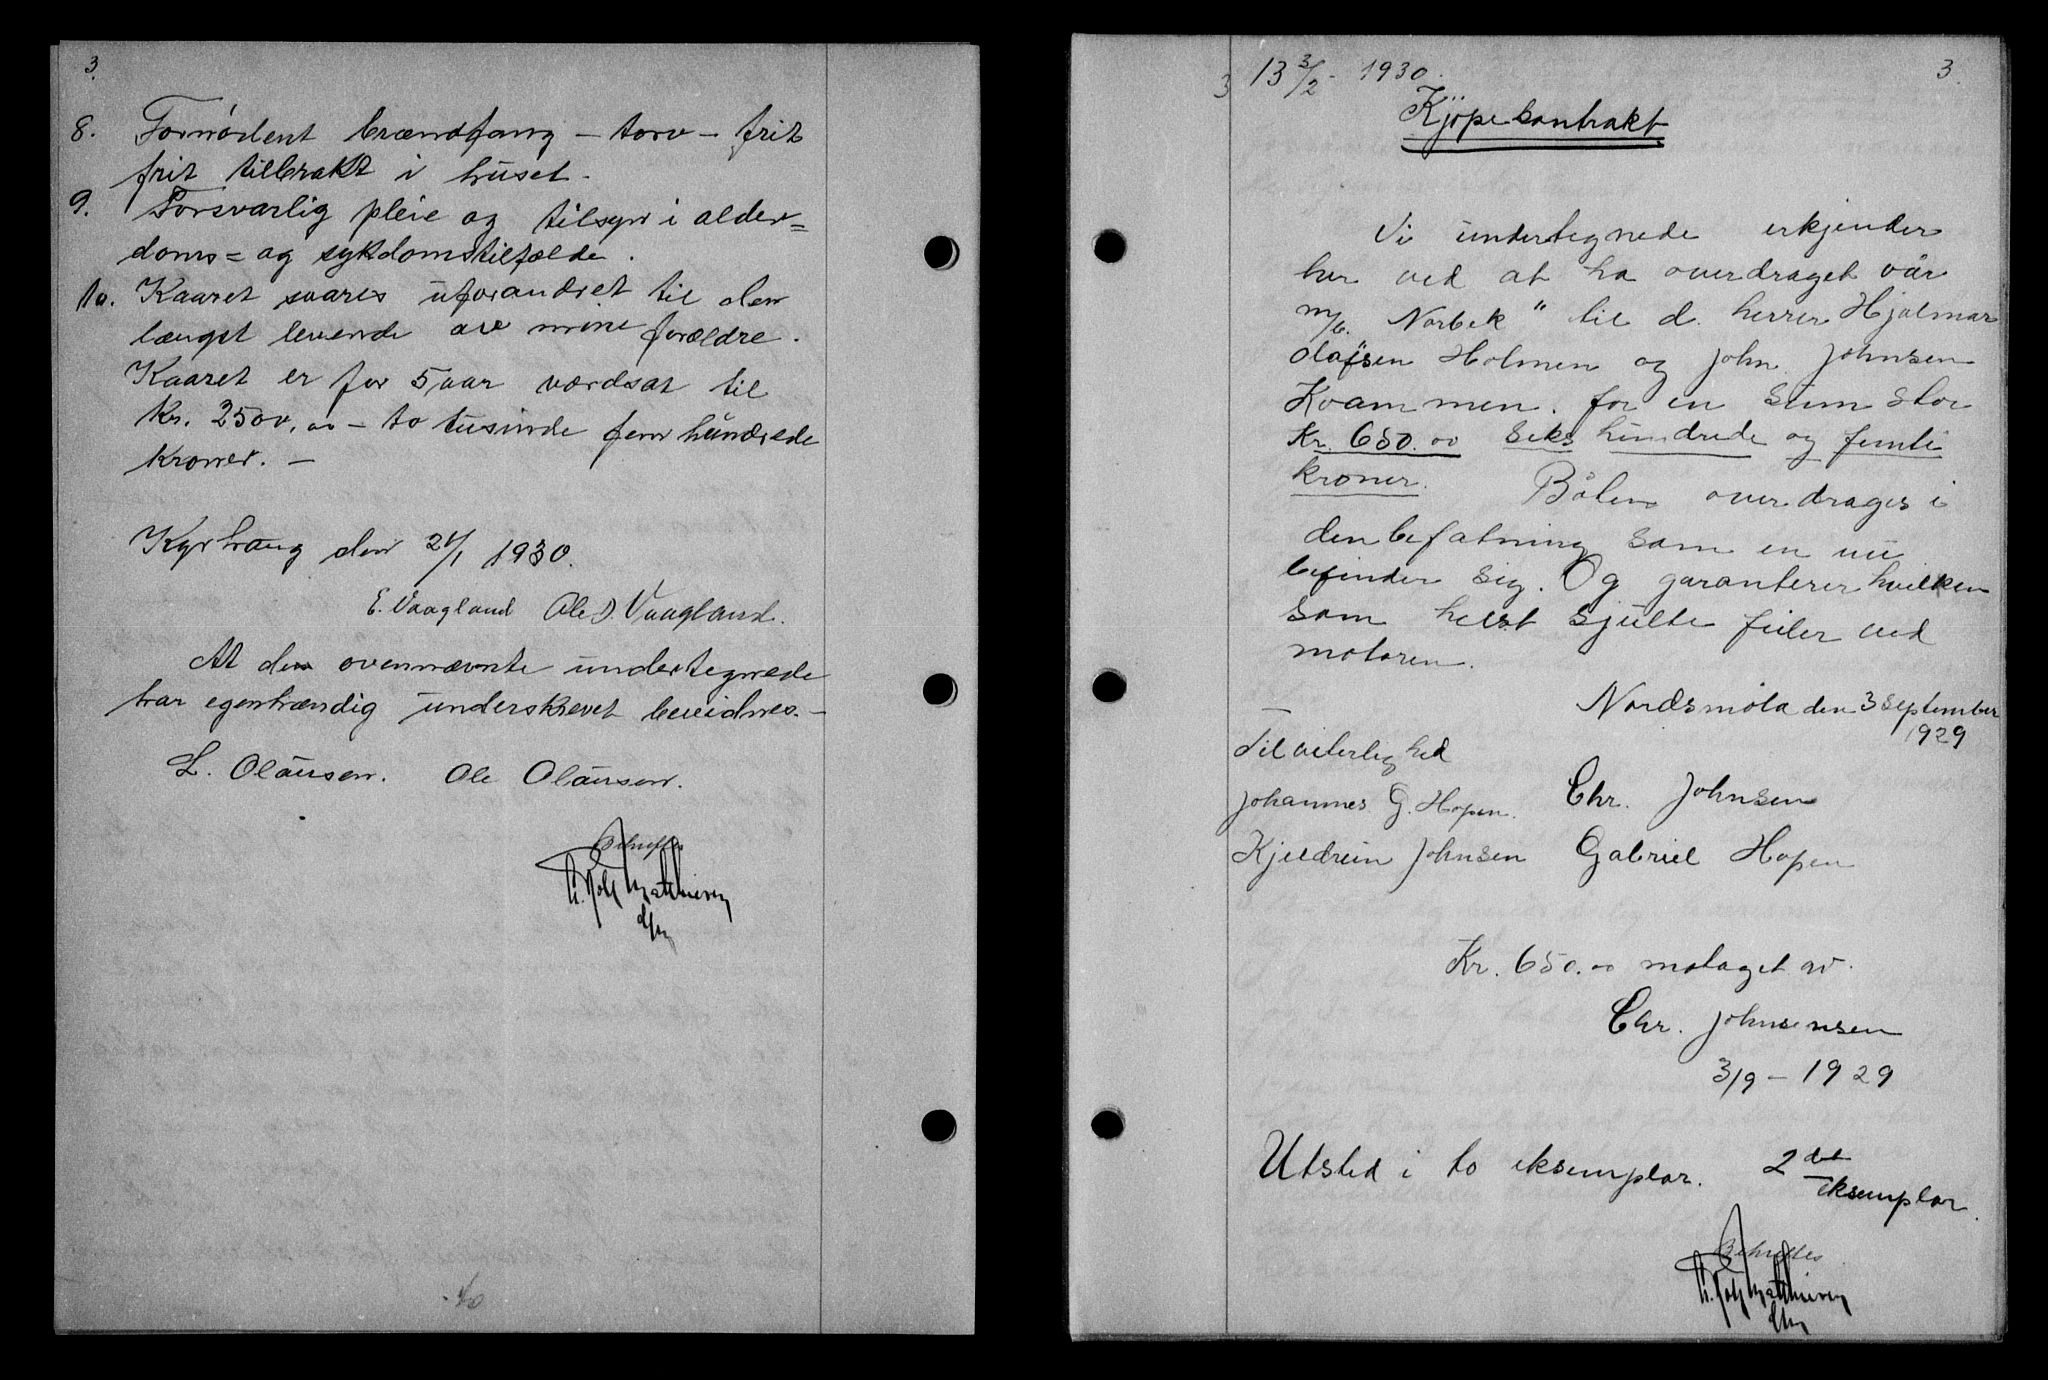 3.
8. Fornødent brændfang – torv – frit
frit tilbrakt i huset.
9. Forsvarlig pleie og tilsyn i alder=
doms= og sykdomstilfælde.
10. Kaaret svares uforandret til den
længst levende av mine forældre.
Kaaret er for 5 aar værdsat til
Kr. 2500,00 – to tusinde fem hundrede
kroner. –
Kyrhaug den 21/1 1930.
E. Vaagland Ole D. Vaagland.
At den ovennævnte undertegnede
har egenhændig underskrevet bevidnes. –
L. Olausen. Ole Olausen.
Bekreftes
3 13 3/2 - 1930. 3.
Kjøpekontrakt
Vi undertegnede erkjender
her ved at ha overdraget vår
m/b. Norbek" til d. herrer Hjalmar
Olafsen Holmen og John Johnsen
Kvammen. for en sum stor
Kr. 650.00 seks hundrede og femti
kroner. Båten overdrages i
den befatning som en nu
befinder sig. Og garanterer hvilken
som helst sjulte feiler ved
motoren.
Nordsmøla den 3 September
1929
Til viterlighed
Johannes G. Hopen. Chr. Johnsen
Kjeldrein Johnsen Gabriel Hopen
Kr. 650.00 motaget av.
Chr. Johnsensen
3/9 – 1929
Utsted i to eksemplar. 2 det
eksemplar.
Bekreftes